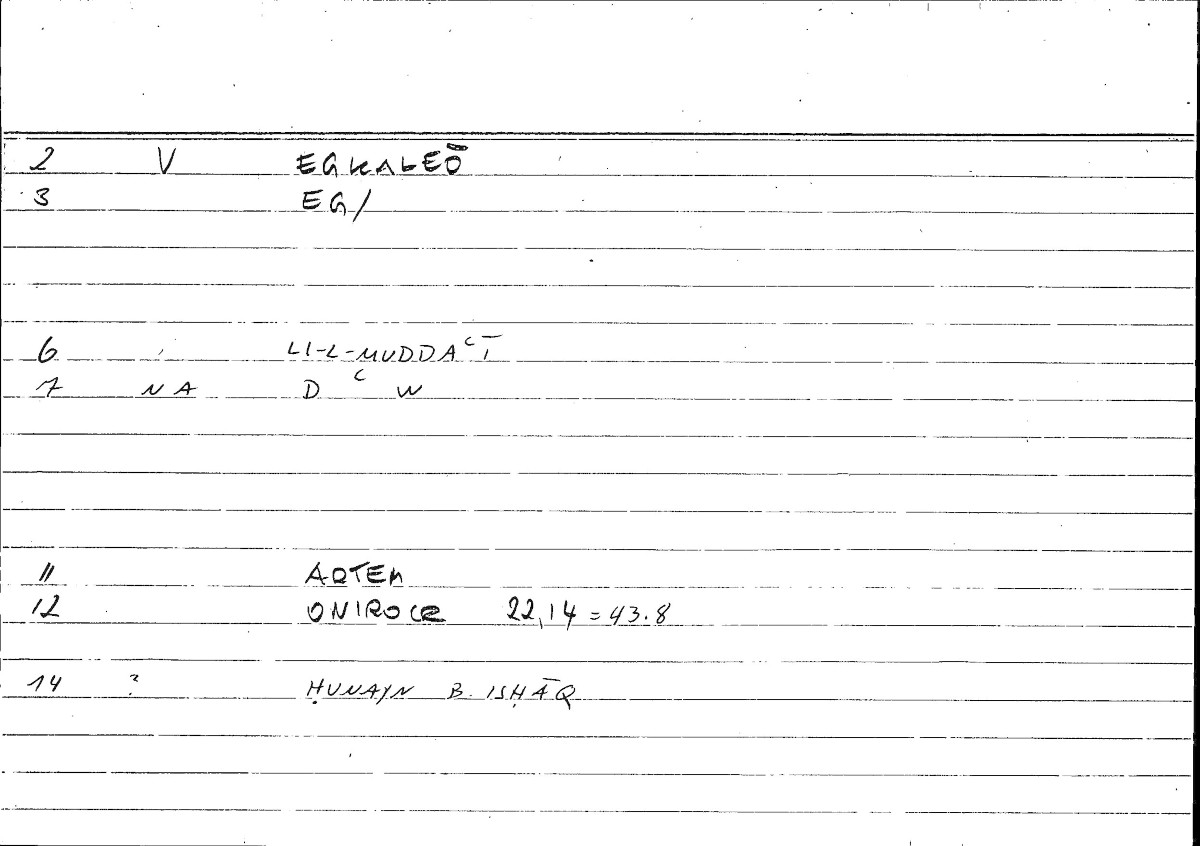 2 V EGKALEŌ
3 EG/
6 LI-L-MUDDAʿĪ
7 NA D ʿ W
11 ARTEM
12 ONIROCR 22,14 = 43.8
14 ? ḤUNAYN B. ISḤĀQ